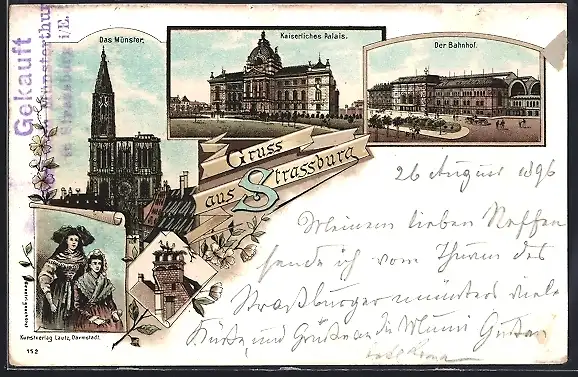 Gekauft
Münsterthurm
in Strassburg i/E.
Das Münster.
Kaiserliches Palais.
Der Bahnhof.
Gruss
aus Strassburg
26 August 1896
Meinem lieben Neffen
sende ich vom Thurm des
Straßburger Münsters viele
Küße, und Grüße an die Mumi
Kunstverlag Lautz, Darmstadt.
152